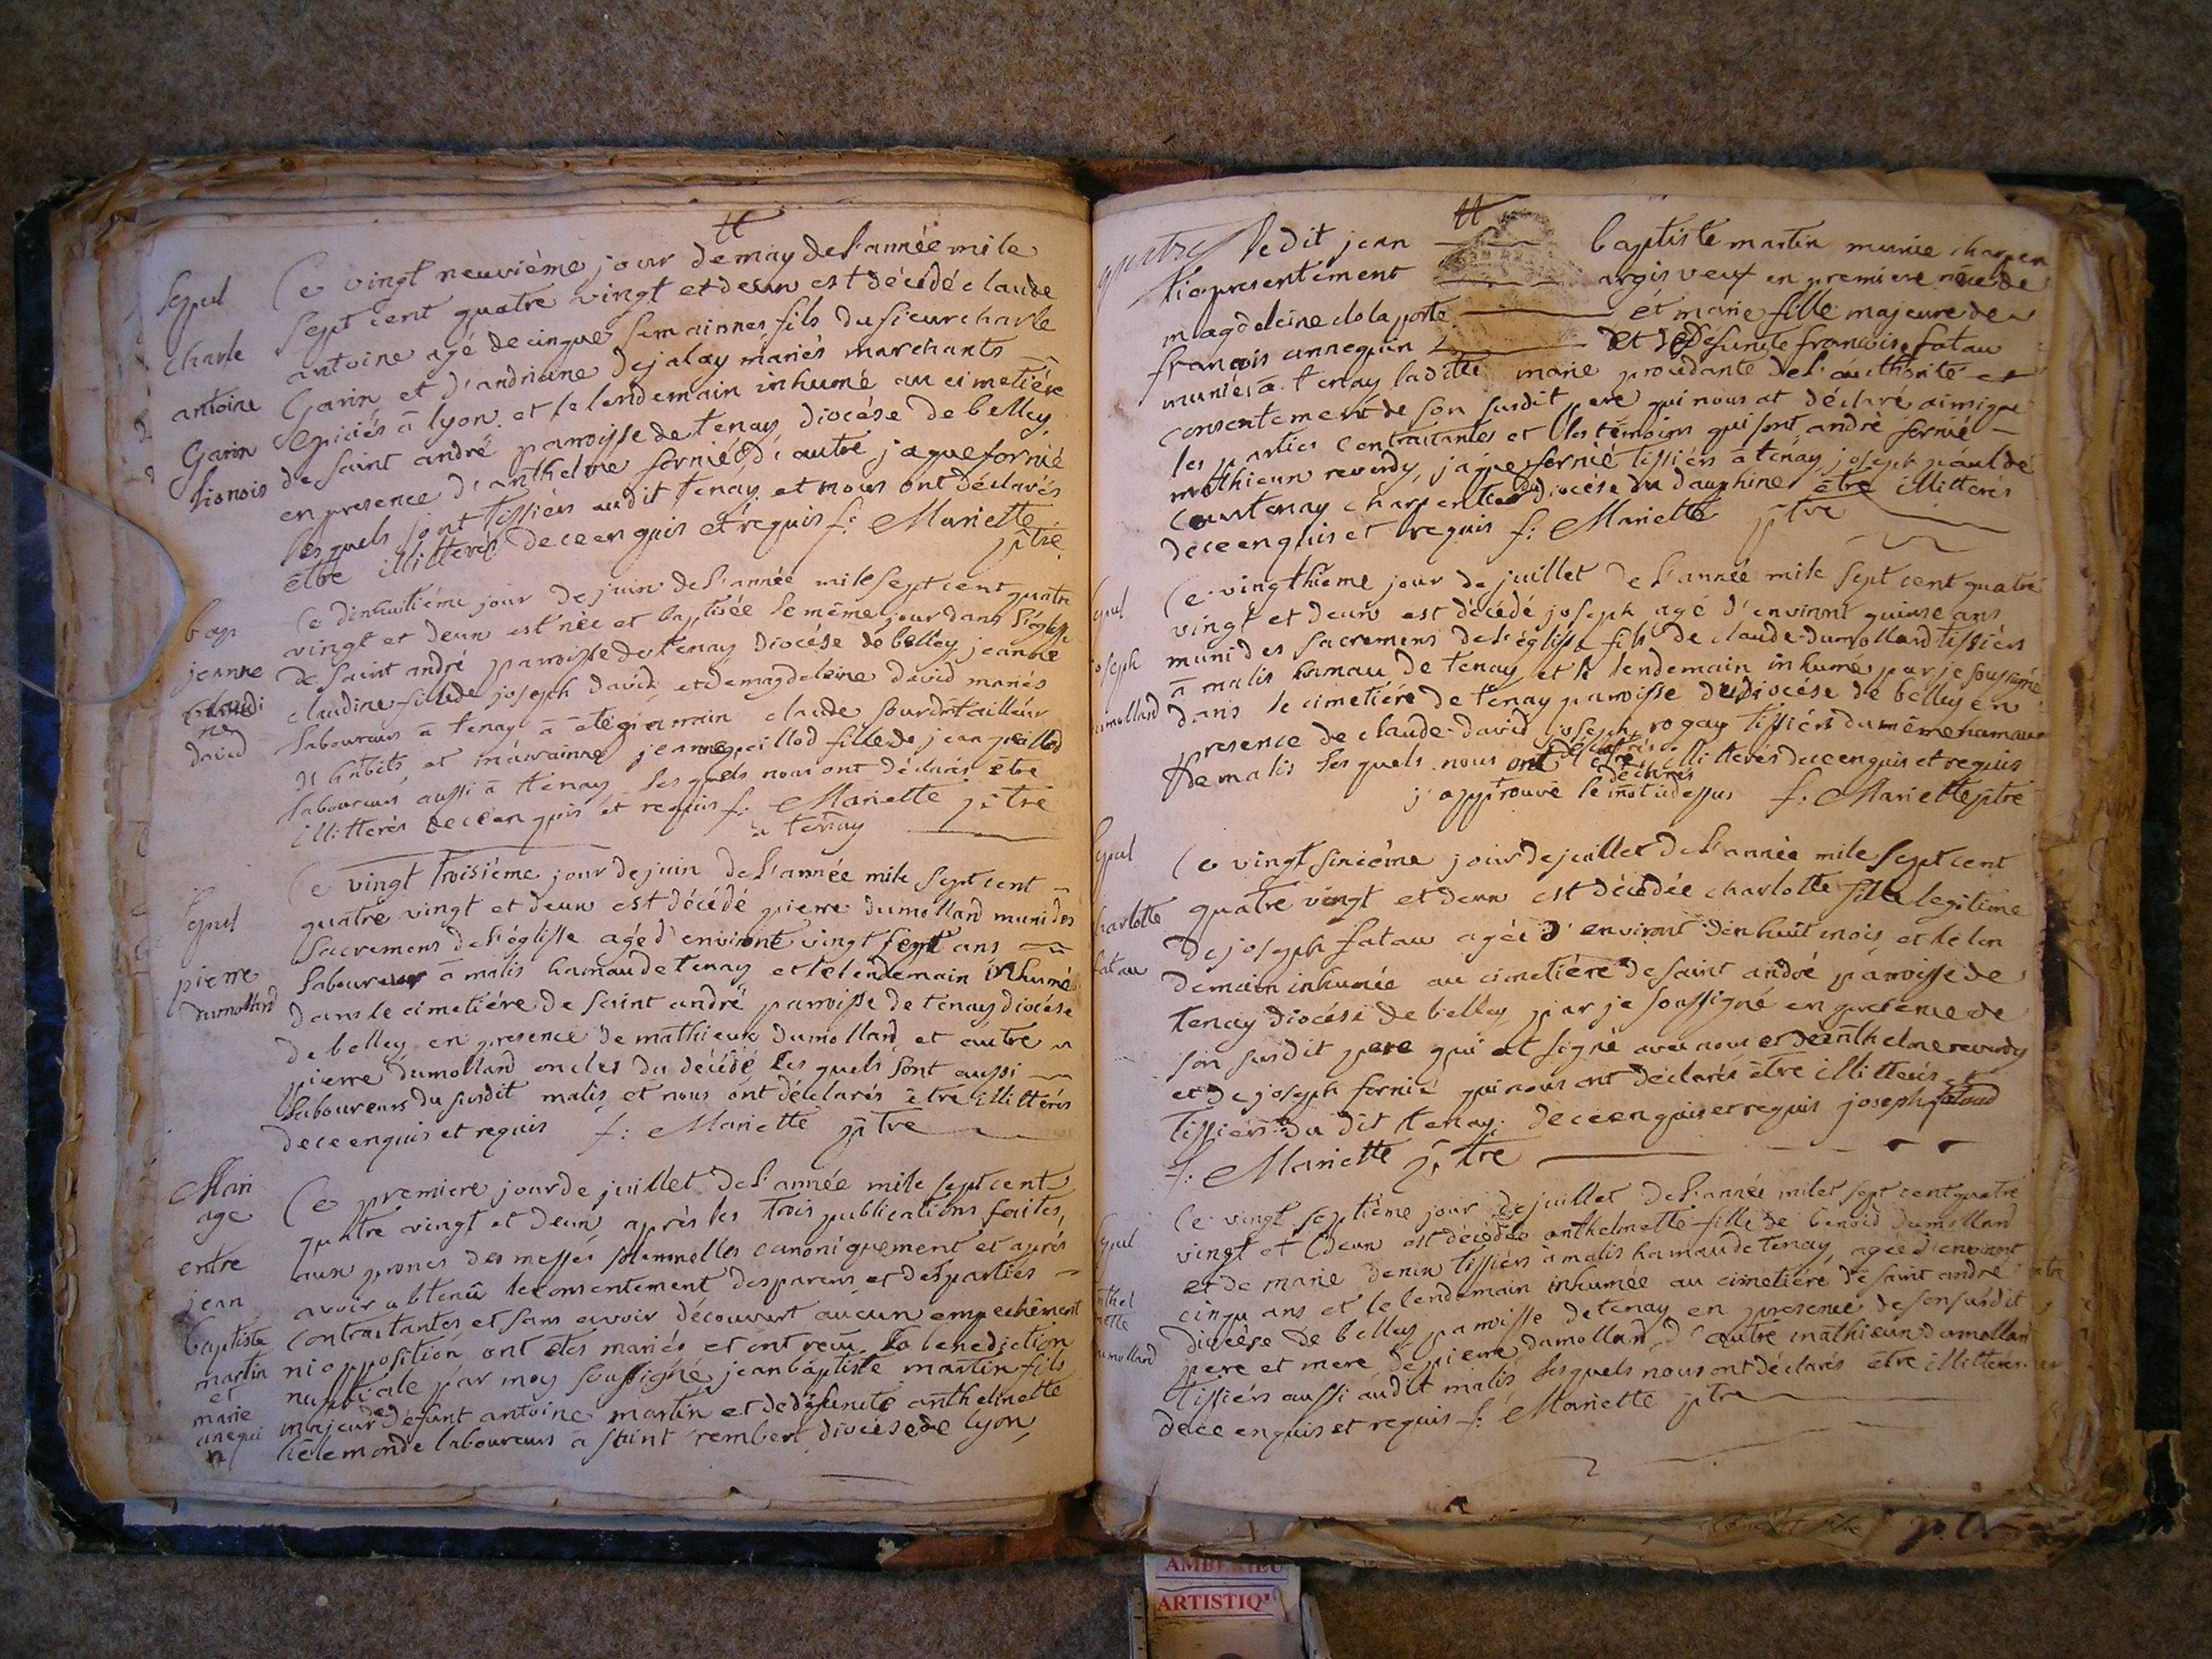 tt
Sepul
charle
antoine
Garin
lionois
Ce vingt neuviéme jour de may de l'année mile
sept cent quatre vingt et deux est décédé claude
antoine agé de cinque semainnes fils du sieur charle
Garin et d'andriane dejalay mariés marchants
Epiciés â lyon et le lendemain inhumé au cimetiére
de saint andré paroisse de tenay diocése de belley
en presence d'anthelme fornié d'autre jaque fornié
les quels sont tissiérs audit tenay et nous ont déclarés
être illitterés de ce enquis et requis f: Mariette
ptre
bap
jeanne
claudi
ne
david
Ce dixhuitiéme jour de juin de l'année mile sept cent quatre
vingt et deux est née et baptisée le même jour dans l'église
de saint andré paroisse de tenay diocése de belley jeanne
claudine fille de joseph david et de magdeleine david mariés
laboureurs â tenay â êté parrain claude sourd tailleur
d'habits et marainne jeanne peillod fille de jean peillod
laboureurs aussi â tenay les quels nous ont déclarés être
illitterés de ce enquis et requis f: Mariette ptre
a tenay
sepul
pierre
dumollard
Ce vingt troisiéme jour de juin de l'année mile sept cent
quatre vingt et deux est décédé pierre dumollard muni des
sacremens de l'églisse agé d'environt vingt sept ans
laboureur â malis hamau de tenay et le lendemain inhumé
dans le cimetiére de saint andré paroisse de tenay diocése
de belley en presence de mathieux dumollard et autre
pierre dumollard oncles du décédé les quels sont aussi
laboureurs du susdit malis et nous ont déclarés être illitterés
de ce enquis et requis f: Mariette ptre
Mari
age
entre
jean
baptiste
martin
et
marie
anequi
n
Ce premiere jour de juillet de l'année mile sept cent
quatre vingt et deux aprés les trois publications faites,
aux prones des messes solemnelles canoniquement et aprés
avoir obtenû le consentement des parens et des parties
contractantes et sans avoir découvert aucun empechêment
ni opposition ont êtés mariés et ont recû la benediction
nuptiale par moy soussigné jean baptiste martin fils
majeur de défunt antoine martin et de défunte anthelmette
tiêlemonde laboureurs â saint rembert diocése de lyon
tt
ledit jean baptiste martin munie charpen
tié presentement argis veuf en premiere noce de
magdeleine de la porte et marie fille majeure de
françois annequin et de défunte françoise fatau
muniés â tenay ladite marie procédante de l'authorité et
consentement de son susdit pere qui nous at déclaré ainsi que
les parties contraitantes et les témoins qui sont andré fornié
mathieux reverdy, jaque fornié tissiérs â tenay, joseph paul dé
courtenay charpentier du diocése du dauphine être illitterés
de ce enquis et requis f: Mariette ptre
sepul
joseph
dumollard
Ce vingthieme jour de juillet de l'année mile sept cent quatre
vingt et deux est décédé joseph agé d'environt quinse ans
muni des sacremens de l'églisse fils de claude dumollard tissiérs
â malis hamau de tenay et le lendemain inhumé par je soussigné
dans le cimetiére de tenay paroisse du diocése de belley en
presence de claude david joseph rogay tissiérs du même hamau
de malis les quels nous ont déclarés être illitterés de ce enquis et requis
j'approuve le mot cidessus f: Mariette ptre
sepul
charlotte
fatau
Ce vingt sixiéme jour de juillet de l'année mile sept cent
quatre vingt et deux est décédée charlotte fille legitime
de joseph fatau agée d'environt dixhuit mois et le len
demain inhumée au cimetiére de saint andré paroisse de
tenay diocése de belley par je soussigné en presence de
son susdit pere qui at signé avec nous et de anthelme reverdy
et de joseph fornié qui nous ont déclarés être illitterés et
tissiérs du dit tenay de ce enquis et requis joseph fataud
f: Mariette ptre
sepul
anthel
mette
dumollard
Ce vingt septiéme jour de juillet de l'année milet sept cent quatre
vingt et deux est décédée anthelmette fille de benoid dumollard
et de marie tissiérs â malis hamau de tenay, agée d'environt
cinqu ans et le lendemain inhumée au cimetiére de saint andré
diocése de belley paroisse de tenay en presence de son susdit
pere et mere de pierre dumollard d'autre mathieux dumollard
tissiérs aussi audit malis les quels nous ont déclarés être illitterés
de ce enquis et requis f: Mariette ptre
ARTISTIQ